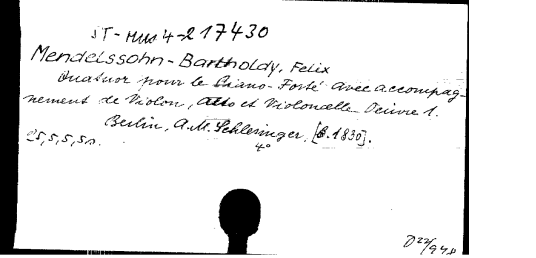 ST-Mus 4-217430
Mendelssohn-Bartholdy, Felix
Quatuor pour le Piano-Forté avec accompag-
nement de Violon, Alto et Violoncelle Oeuvre 1.
Berlin, A.M. Schlesinger, [c. 1830].
25,5,5,5 s. 4°
D22/948